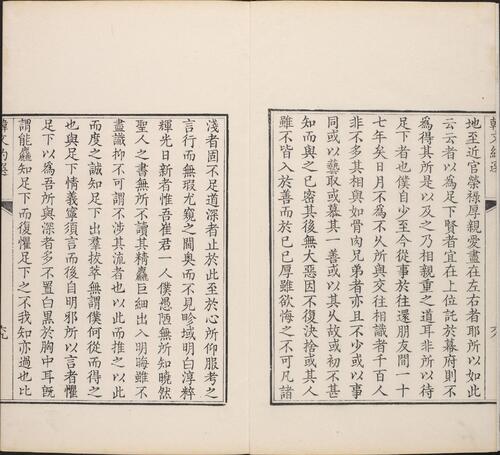 韓文約選
地至近官榮祿厚親愛盡在左右者耶所以如此
云云者以為足下賢者宜在上位託於幕府則不
為得其所是以及之乃相親重之道耳非所以待
足下者也僕自少至今從事於往還朋友間一十
七年矣日月不為不久所與交往相識者千百人
非不多其相與如骨肉兄弟者亦且不少或以事
同或以藝取或慕其一善或以其久故或初不甚
知而與之已密其後無大惡因不復決捨或其人
雖不皆入於善而於已已厚雖欲悔之不可凡諸
淺者固不足道深者止於此至於心所仰服考之
言行而無瑕尤窺之閫奧而不見畛域明白淳粹
輝光日新者惟吾崔君一人僕愚陋無所知曉然
聖人之書無所不讀其精麤巨細出入明晦雖不
盡識抑不可謂不涉其流者也以此而推之以此
而度之誠知足下出羣拔萃無謂僕何從而得之
也與足下情義寧須言而後自明邪所以言者懼
足下以為吾所與深者多不置白黑於胸中耳旣
謂能麤知足下而復懼足下之不我知亦過也比
韓文約選